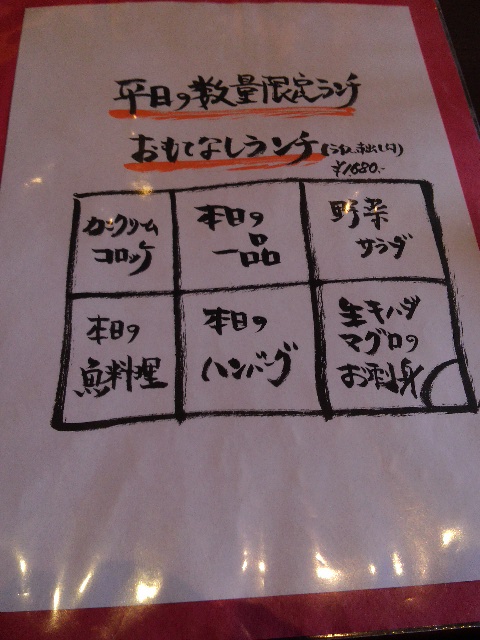 平日の数量限定ランチ
おもてなしランチ
¥1680.-
カニクリーム
コロッケ
本日の
一品
野菜
サラダ
本日の
魚料理
本日の
ハンバーグ
生キハダ
マグロの
お刺身